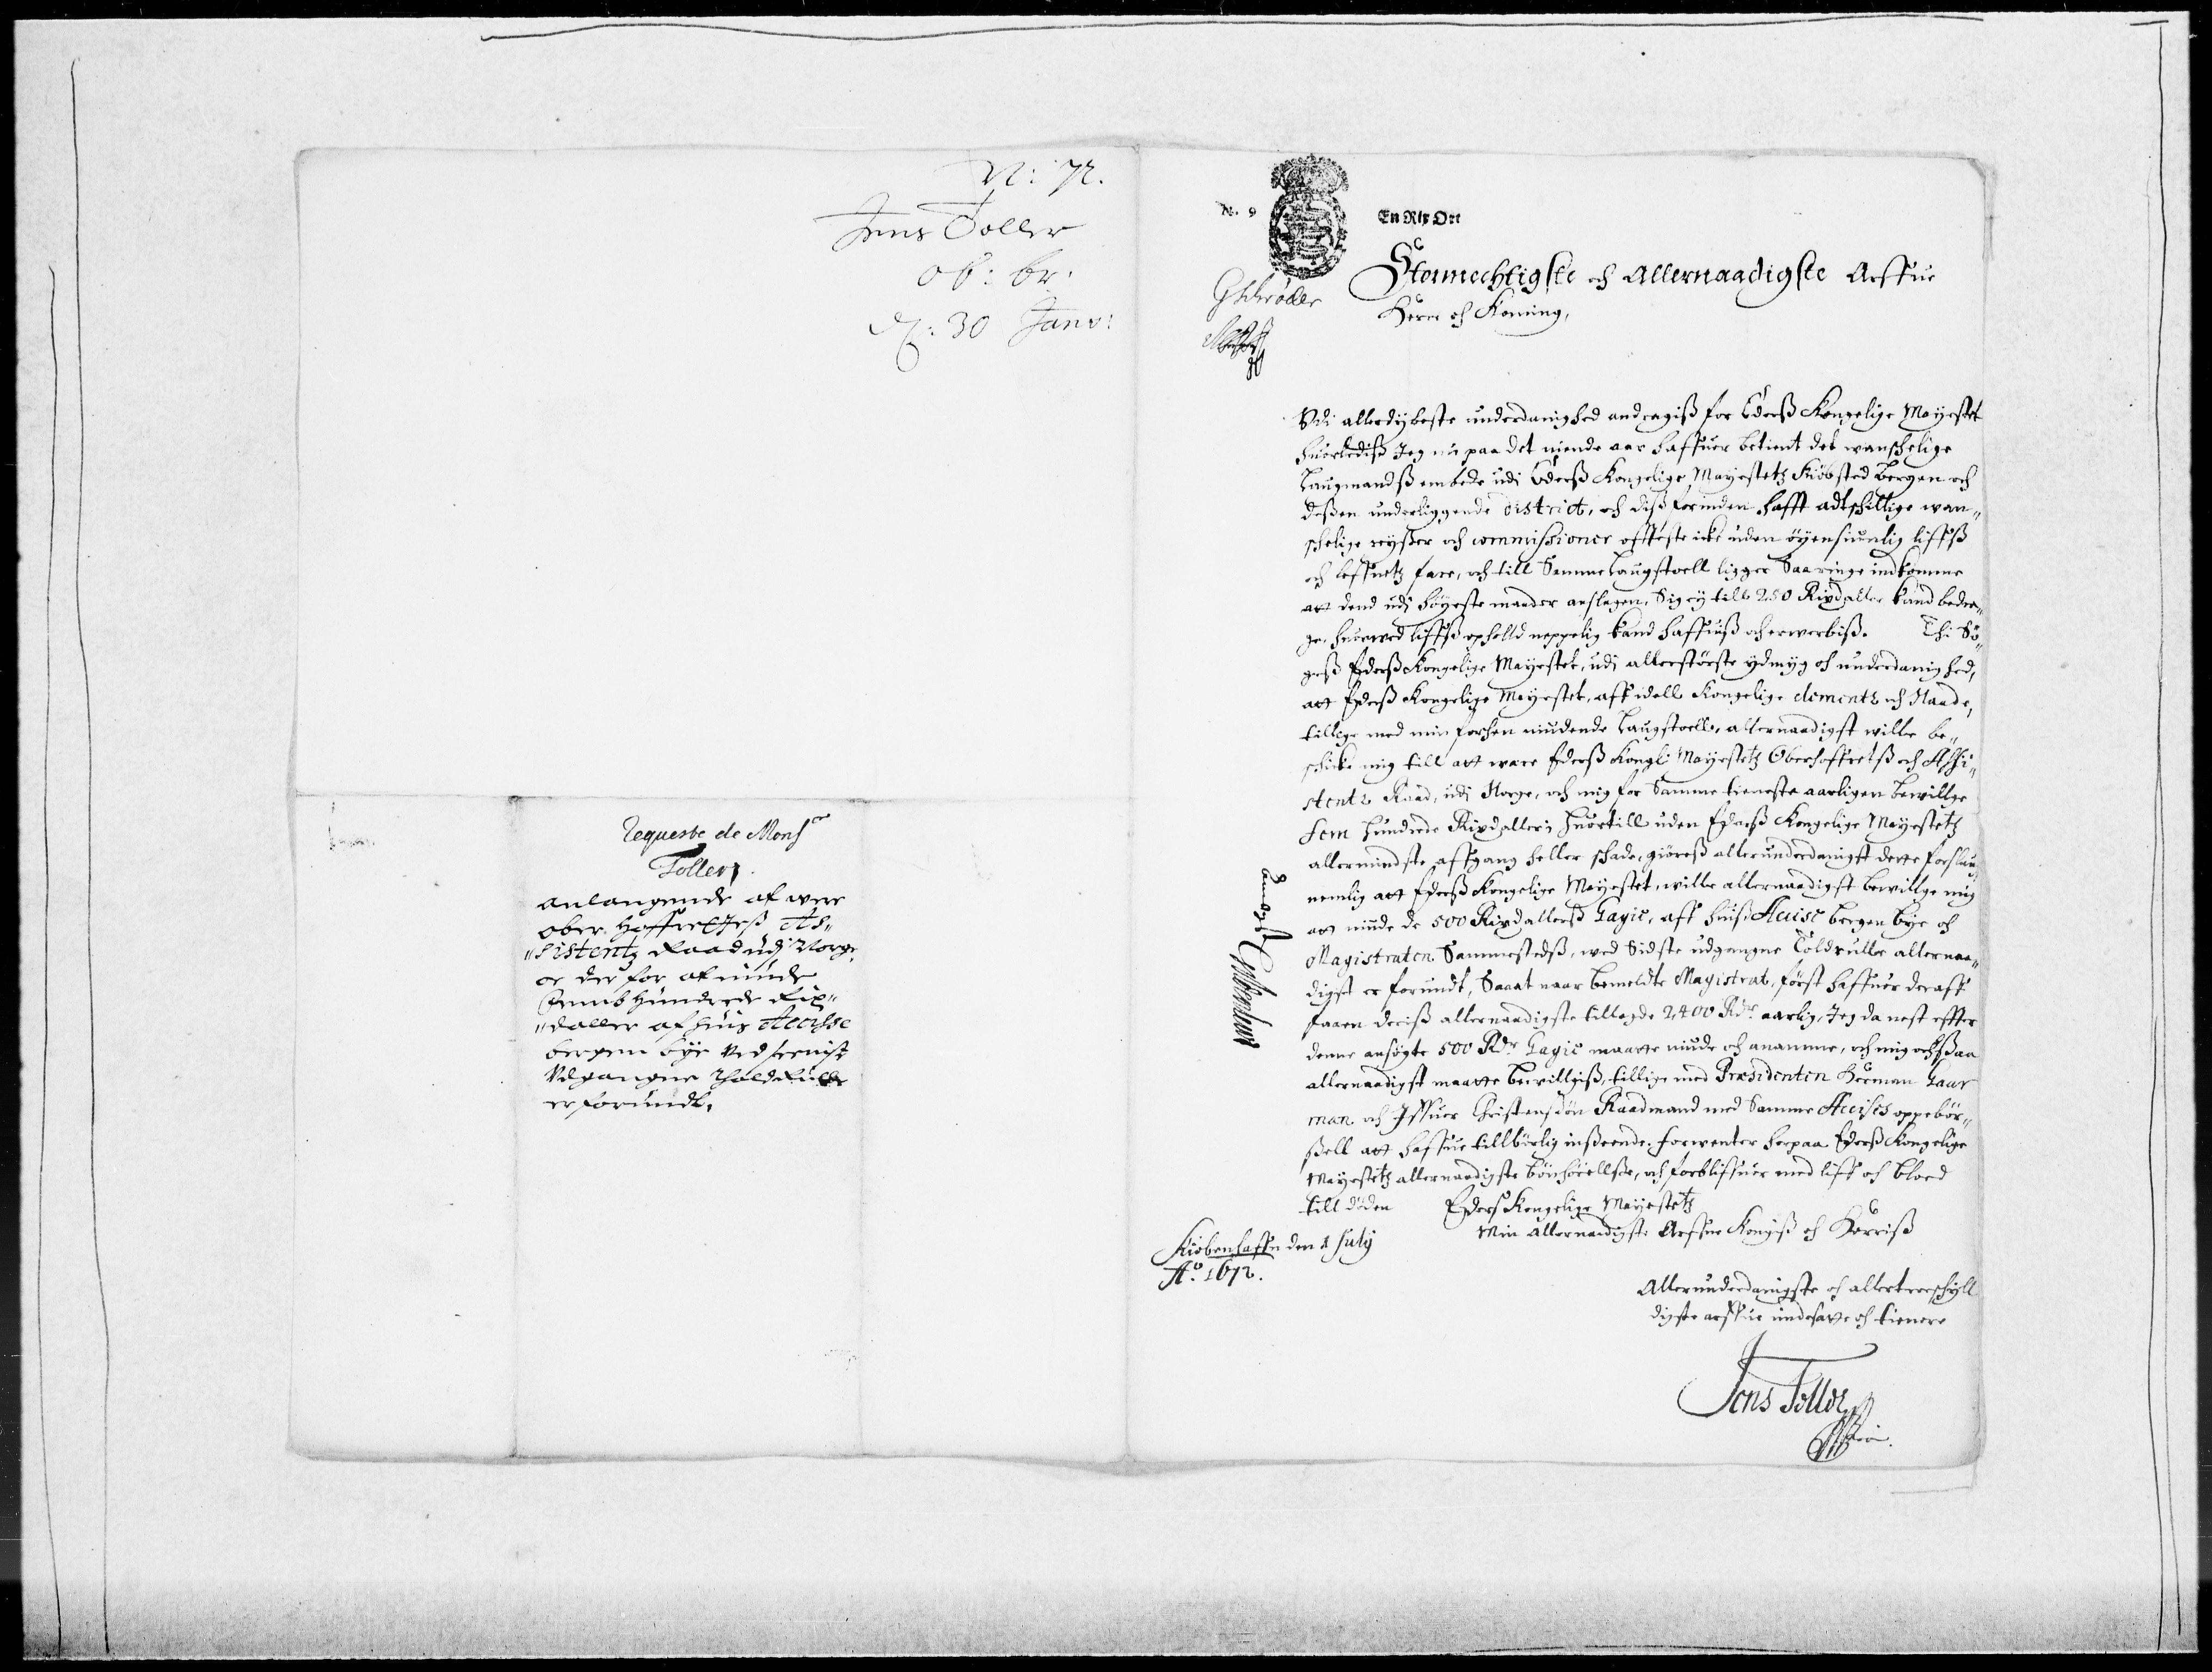 N: 72.
Jens Toller
ob: br:
d: 30 Janv:
Requeste de Monsr
Toller
anlangende at vere
ober Hoffrettess As„
„sistentz Raad udj Norge,
oc der for at niude
femb Hundrede Rix„
„daller af huis Accisse
bergen bye ved seenist
Udgangne Tholdrulle
er forundt.
No. 9
En Rix Ort
Stormechtigste och Allernaadigste Arffue
Herre och Koning,
Udi allerdybeste underdanighed andragiss for Eders Kongelige Mayestet
huorlediss Jeg nu paa det niende aar haffuer betient det wanschelige
Laugmandss embede udi Eders Kongelige Mayestetz Kiøbsted Bergen och
dessen underliggende district, och diss forinden hafft adtschillige wan„
schelige reysser och commissioner offteste icke uden øyensiunlig liffss
och leffnetz fare, och till Samme Laugstoell ligger Saa ringe indkomme
att dend udj høyeste maader anslagen, Sig ej till 250 Rixdaller kand bedra„
ge, huorved liffss ophold neppelig kand haffuiss och erwerbiss. Thi Sø„
gess Eders Kongelige Mayestet, udj allerstørste ydmyg och underdanighed,
att Eders Kongelige Mayestet, aff idell Kongelige clementz och Naade,
tillige med min forhen niudende Laugstoell, allernaadigst wille be„
schicke mig till att wære Eders Kongl: Mayestetz Oberhoffretss och Assi„
stentz Raad, udj Norge, och mig for Samme tieneste aarligen bewillge
fem hundrede Rixdaller; huortill uden Eders Kongelige Mayestetz
allermindste affgang heller schade, giøress allerunderdanigst dette forslau,
nemlig att Eders Kongelige Mayestet, wille allernaadigst bewillge mig
att niude de 500 Rixdallerss Gagie, aff huiss Accise bergen bye och
Magistraten Sammestedss, wed Sidste udgangne Toldrulle allernaa„
digst er forundt, Saaat naar bemeldte Magistrat, først haffuer deraff
faaen deriss allernaadigste tillagde 2400 Rdr aarlig, Jeg da nest effter
denne ansøgte 500 Rdr Gagie maatte niude och anamme, och mig ochssaa
allernaadigst maatte bewillgiss, tillige med Præsidenten Herman Gar
man och Iffuer Christenssøn Raadmand med Samme Accises oppebør„
ssell att haffue tillbørlig indseende. forwenter herpaa Eders Kongelige
Mayestetz allernaadigste bønhørellsse, och forbliffuer med liff och bloed
till døden Eders Kongelige Mayestetz
Min Allernaadigste Arffue Kongiss och Herriss
Kiøbenhaffn den 1 July
Ao. 1672.
Allerunderdanigste och allertroeschyll
digste arffue undersatte och tienere
Jens Toller